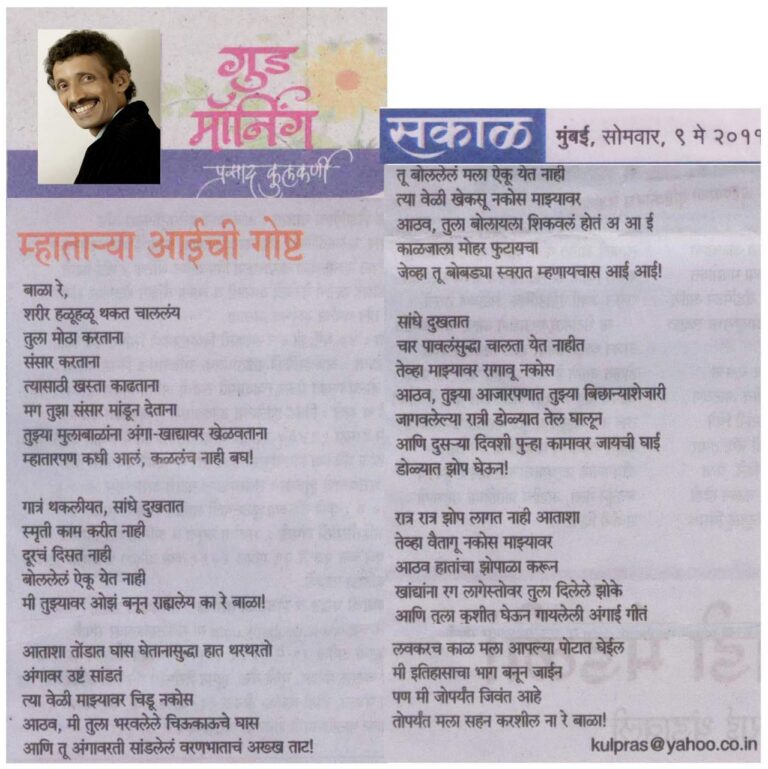 गुड
मॉर्निंग
प्रसाद कुलकर्णी
म्हाताऱ्या आईची गोष्ट
बाळा रे,
शरीर हळूहळू थकत चाललंय
तुला मोठा करताना
संसार करताना
त्यासाठी खस्ता काढताना
मग तुझा संसार मांडून देताना
तुझ्या मुलाबाळांना अंगा-खाद्यावर खेळवताना
म्हातारपण कधी आलं, कळलंच नाही बघ!
गात्रं थकलीयत, सांधे दुखतात
स्मृती काम करीत नाही
दूरचं दिसत नाही
बोललेलं ऐकू येत नाही
मी तुझ्यावर ओझं बनून राह्यलेय का रे बाळा!
आताशा तोंडात घांस घेतानासुद्धा हात थरथरतो
अंगावर उष्टं सांडतं
त्या वेळी माझ्यावर चिडू नकोस
आठव, मी तुला भरवलेले चिऊकाऊचे घास
आणि तू अंगावरती सांडलेलं वरणभाताचं अख्ख ताट!
सकाळ मुंबई, सोमवार, ९ मे २०११
तू बोललेलं मला ऐकू येत नाही
त्या वेळी खेकसू नकोस माझ्यावर
आठव, तुला बोलायला शिकवलं होतं अ आ ई
काळजाला मोहर फुटायचा
जेव्हा तू बोबड्या स्वरात म्हणायचास आई आई!
सांधे दुखतात
चार पावलंसुद्धा चालता येत नाहीत
तेव्हा माझ्यावर रागावू नकोस
आठव, तुझ्या आजारपणात तुझ्या बिछान्याशेजारी
जागवलेल्या रात्री डोळ्यात तेल घालून
आणि दुसऱ्या दिवशी पुन्हा कामावर जायची घाई
डोळ्यात झोप घेऊन!
रात्र रात्र झोप लागत नाही आताशा
तेव्हा वैतागू नकोस माझ्यावर
आठव हातांचा झोपाळा करून
खांद्यांना रग लागेस्तोवर तुला दिलेले झोके
आणि तुला कुशीत घेऊन गायलेली अंगाई गीतं
लवकरच काळ मला आपल्या पोटात घेईल
मी इतिहासाचा भाग बनून जाईन
पण मी जोपर्यंत जिवंत आहे
तोपर्यंत मला सहन करशील ना रे बाळा!
kulpras@yahoo.co.in